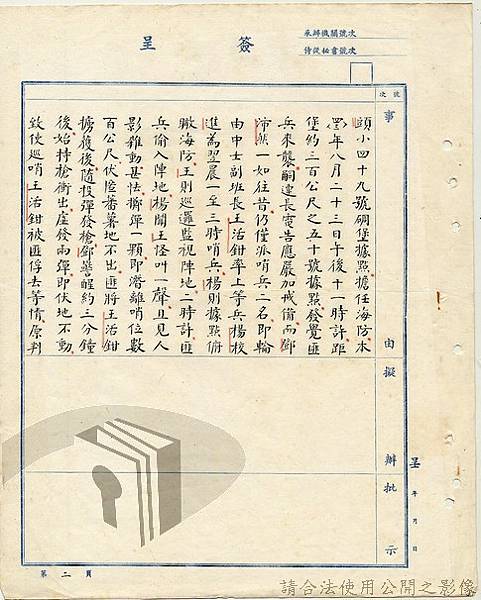 簽呈
承辦機關號次
侍從秘書號次
號次
事
由擬
辦批
示
呈
年
月
日
頭小四十九號碉堡據點擔任海防本
年八月二十三日午後十一時許距
堡約三百公尺之五十號據點發覺匪
兵來襲嗣連長電告應嚴加戒備而鄧
沛然一如往昔仍僅派哨兵二名即輪
由中士副班長王活鉗率上等兵楊校
進為翌晨一至三時哨兵楊則據點俯
瞰海防王則巡邏監視陣地二時許匪
兵偷入陣地楊聞王怪叫一聲且見人
影雜動甚怯擲彈一顆即潛離哨位數
百公尺伏陰蕃薯地不出匪將王活鉗
擄獲後隨投彈發槍鄧驚醒約三分鐘
後始持槍衝出虛發兩彈即伏地不動
致使巡哨王活鉗被匪俘去等情原判
第二頁
請合法使用公開之影像